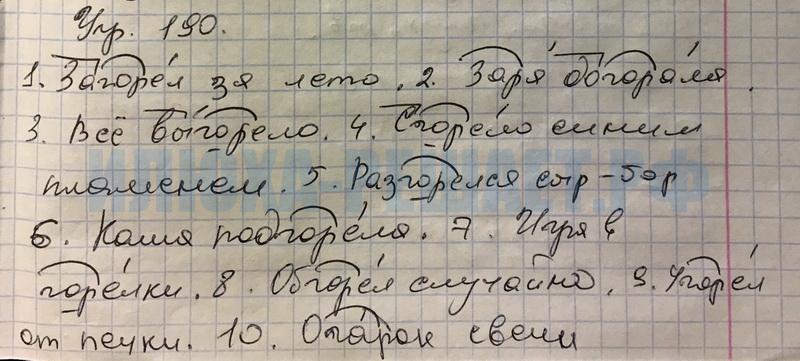 Упр. 190.
1. Загорел за лето. 2. Заря догорала.
3. Всё выгорело. 4. Сгорело синим
пламенем. 5. Разгорелся сыр-бор
6. Каша подгорела. 7. Игра в
горелки. 8. Обгорел случайно. 9. Угорел
от печки. 10. Огарок свечи